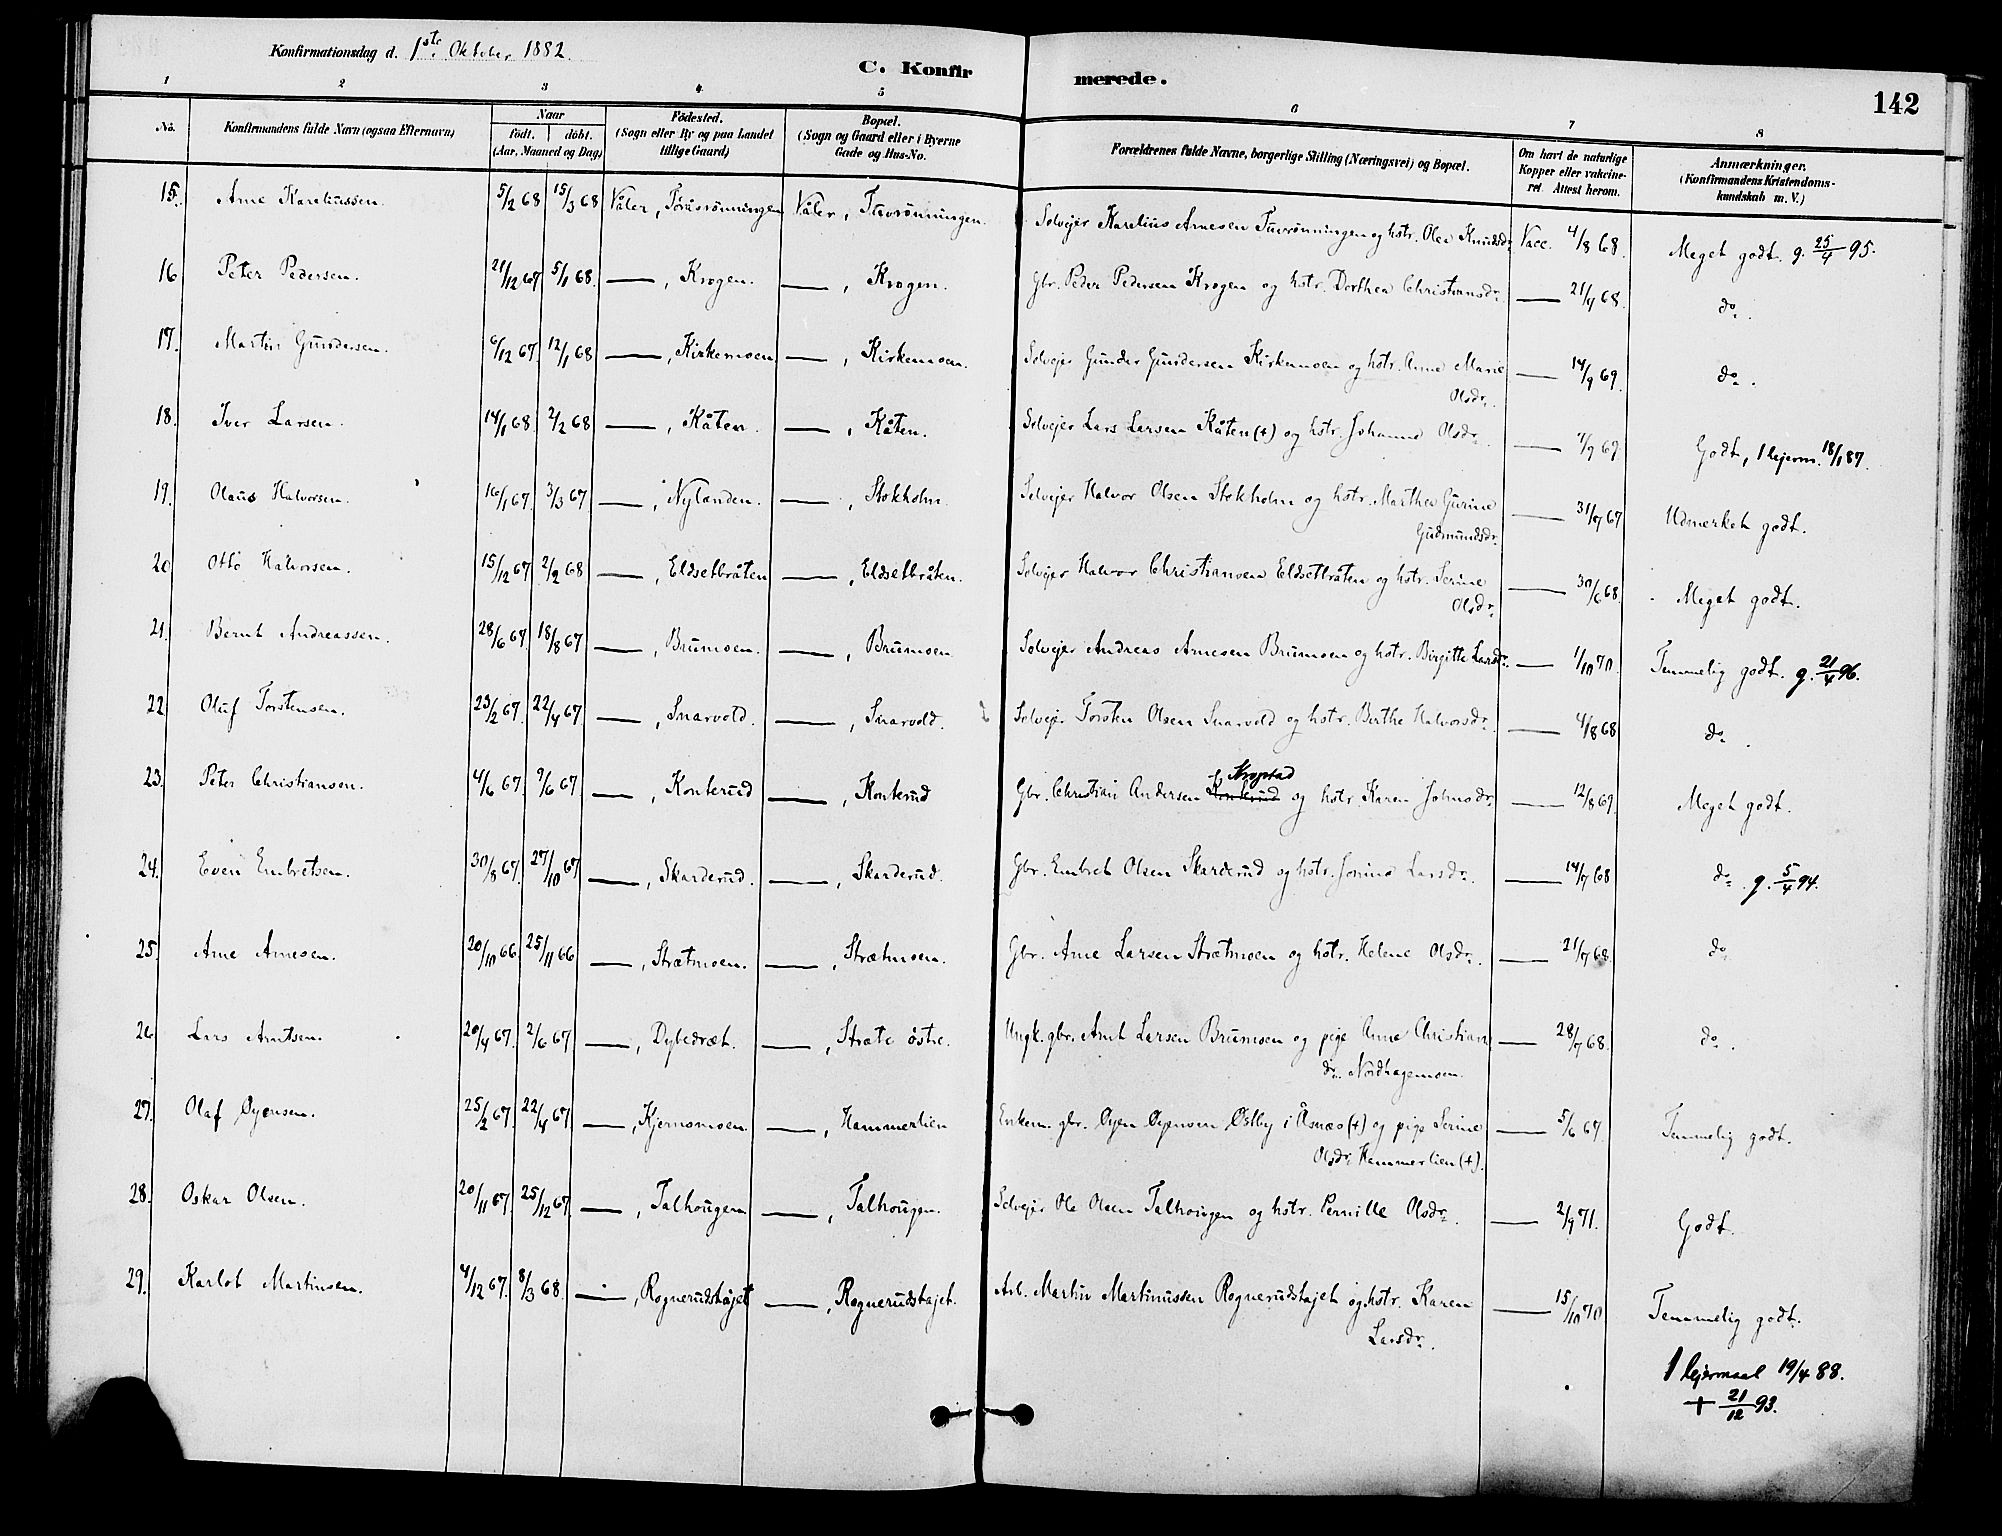 Konfirmationsdag d. 1ste Oktober 1882.
C. Konfirmerede.
142
1 2 3 4 5 6 7 8
No. Konfirmandens fulde Navn (ogsaa Efternavn) Naar født. døbt. (Aar, Maaned og Dag) Fødested. (Sogn eller By og paa Landet tillige Gaard) Bopæl. (Sogn og Gaard eller i Byerne Gade og Hus-No. Forældrenes fulde Navne, borgerlige Stilling (Næringsvei) og Bopæl. Om havt de naturlige Kopper eller vakcineret. Attest herom. Anmærkninger. (Konfirmandens Kristendomskundskab m. V.)
15. Arne Kareliussen. 5/2 68 15/3 68 Våler, Toråsrønningen Våler, Tuvrønningen. Selvejer Karelius Arnesen Tuvrønningen og hstr. Olea Knudsdr. Vacc. 4/8 68. Meget godt. g. 25/4 95.
16 Peter Pedersen. 21/12 67 5/1 68. —, Krogen. —, Krogen. Gbr. Peder Pedersen Krogen og hstr. Dorthea Christiansdr. — 21/4 68. do.
17. Martin Gundersen. 6/12 67. 12/1 68 —, Kirkemoen —, Kirkemoen. Selvejer Gunder Gundersen Kirkemoen og hstr. Anne Marie Olsdr. — 14/9 69. do.
18. Iver Larsen. 14/1 68 2/2 68 —, Kåten. —, Kåten. Selvejer Lars Larsen Kåten (+) og hstr. Johanne Olsdr. — 7/9 69. Godt, 1 lejerm. 18/1 87.
19. Olaus Halvorsen. 16/1 67. 3/3 67 —, Nylanden. —, Stokholm. Selvejer Halvor Olsen Stokholm og hstr. Marthea Gurine Gudmundsdr. — 31/7 67 Udmerket godt.
20 Otto Halvorsen. 15/12 67 2/2 68 —, Eldsetbråten —, Eldsetbråten. Selvejer Halvor Christiansen Eldsetbråten og hstr. Serine Olsdr. — 30/6 68. Meget godt.
21. Bernt Andreassen. 28/6 67. 18/8 67 —, Brumoen. —, Brumoen. Selvejer Andreas Arnesen Brumoen og hstr. Birgitte Larsdr. — 1/10 70. Temmelig godt. g. 21/4 96.
22. Oluf Torstensen. 23/2 67. 22/4 67 —, Snarvold. —, Snarvold. Selvejer Torsten Olsen Snarvold og hstr. Berthe Halvorsdr. — 4/8 68 do.
23. Peter Christiansen. 4/6 67. 9/6 67 —, Konterud —, Konterud Gbr. Christian Andersen Konterud Kropstad og hstr. Karen Johnsdr. — 12/8 69. Meget godt.
24. Even Embretsen. 30/8 67. 27/10 67 —, Skarderud. —, Skarderud. Gbr. Embret Olsen Skarderud og hstr. Jonine Larsdr. — 14/7 68 do. g. 5/4 94.
25. Arne Arnesen. 20/10 66 25/11 66 —, Strætmoen. —, Strætmoen. Gbr. Arne Larsen Strætmoen og hstr. Helene Olsdr. — 21/7 68. do.
26 Lars Arntsen. 20/4 67. 2/6 67 —, Dybedræt. —, Stræte østre. Ungk. gbr. Arnt Larsen Brumoen og pige Anne Christiansdr. Nordhagemoen. — 28/7 68. do.
27. Olaf Øyensen. 25/2 67. 22/4 67. —, Kjernsmoen —, Hammerlien Enkem. gbr. Øyen Øyensen Østby i Åsnæs (+) og pige Serine Olsdr. Hammerlien (+). — 5/6 67. Temmelig godt.
28. Oskar Olsen. 20/11 67. 25/12 67. —, Talhougen —, Talhougen. Selvejer Ole Olsen Talhougen og hstr. Pernille Olsdr. — 2/9 71. Godt.
29. Karlot Martinsen. 4/12 67. 8/3 68. —, Rognerudshøjet —, Rognerudshøjet. Arb. Martin Martinussen Rognerudshøjet og hstr. Karen Larsdr. — 15/10 70 Temmelig godt.
1 lejermaal 19/4 88.
+ 21/12 93.